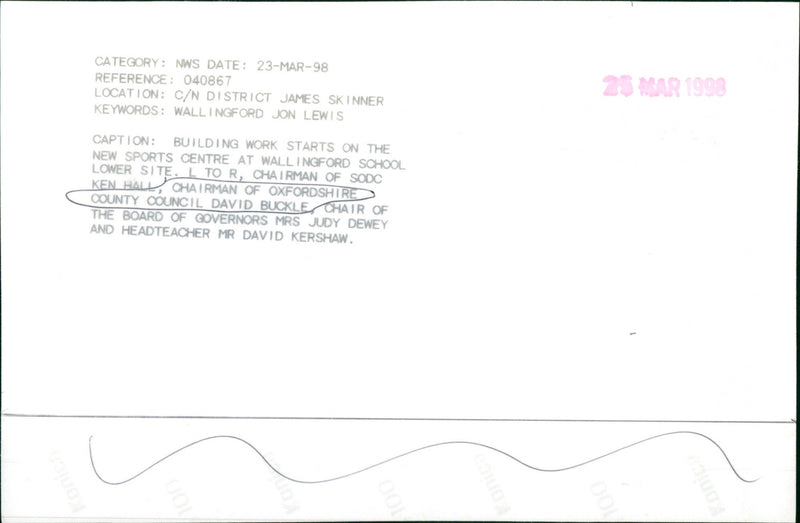 CATEGORY: NWS DATE: 23-MAR-98
REFERENCE: 040867
LOCATION: C/N DISTRICT JAMES SKINNER
KEYWORDS: WALLINGFORD JON LEWIS
25 MAR 1998
CAPTION: BUILDING WORK STARTS ON THE
NEW SPORTS CENTRE AT WALLINGFORD SCHOOL
LOWER SITE. L TO R, CHAIRMAN OF SODC
KEN HALL, CHAIRMAN OF OXFORDSHIRE
COUNTY COUNCIL DAVID BUCKLE, CHAIR OF
THE BOARD OF GOVERNORS MRS JUDY DEWEY
AND HEADTEACHER MR DAVID KERSHAW.
Konica
100
Konica
100
Konica
100
Konica